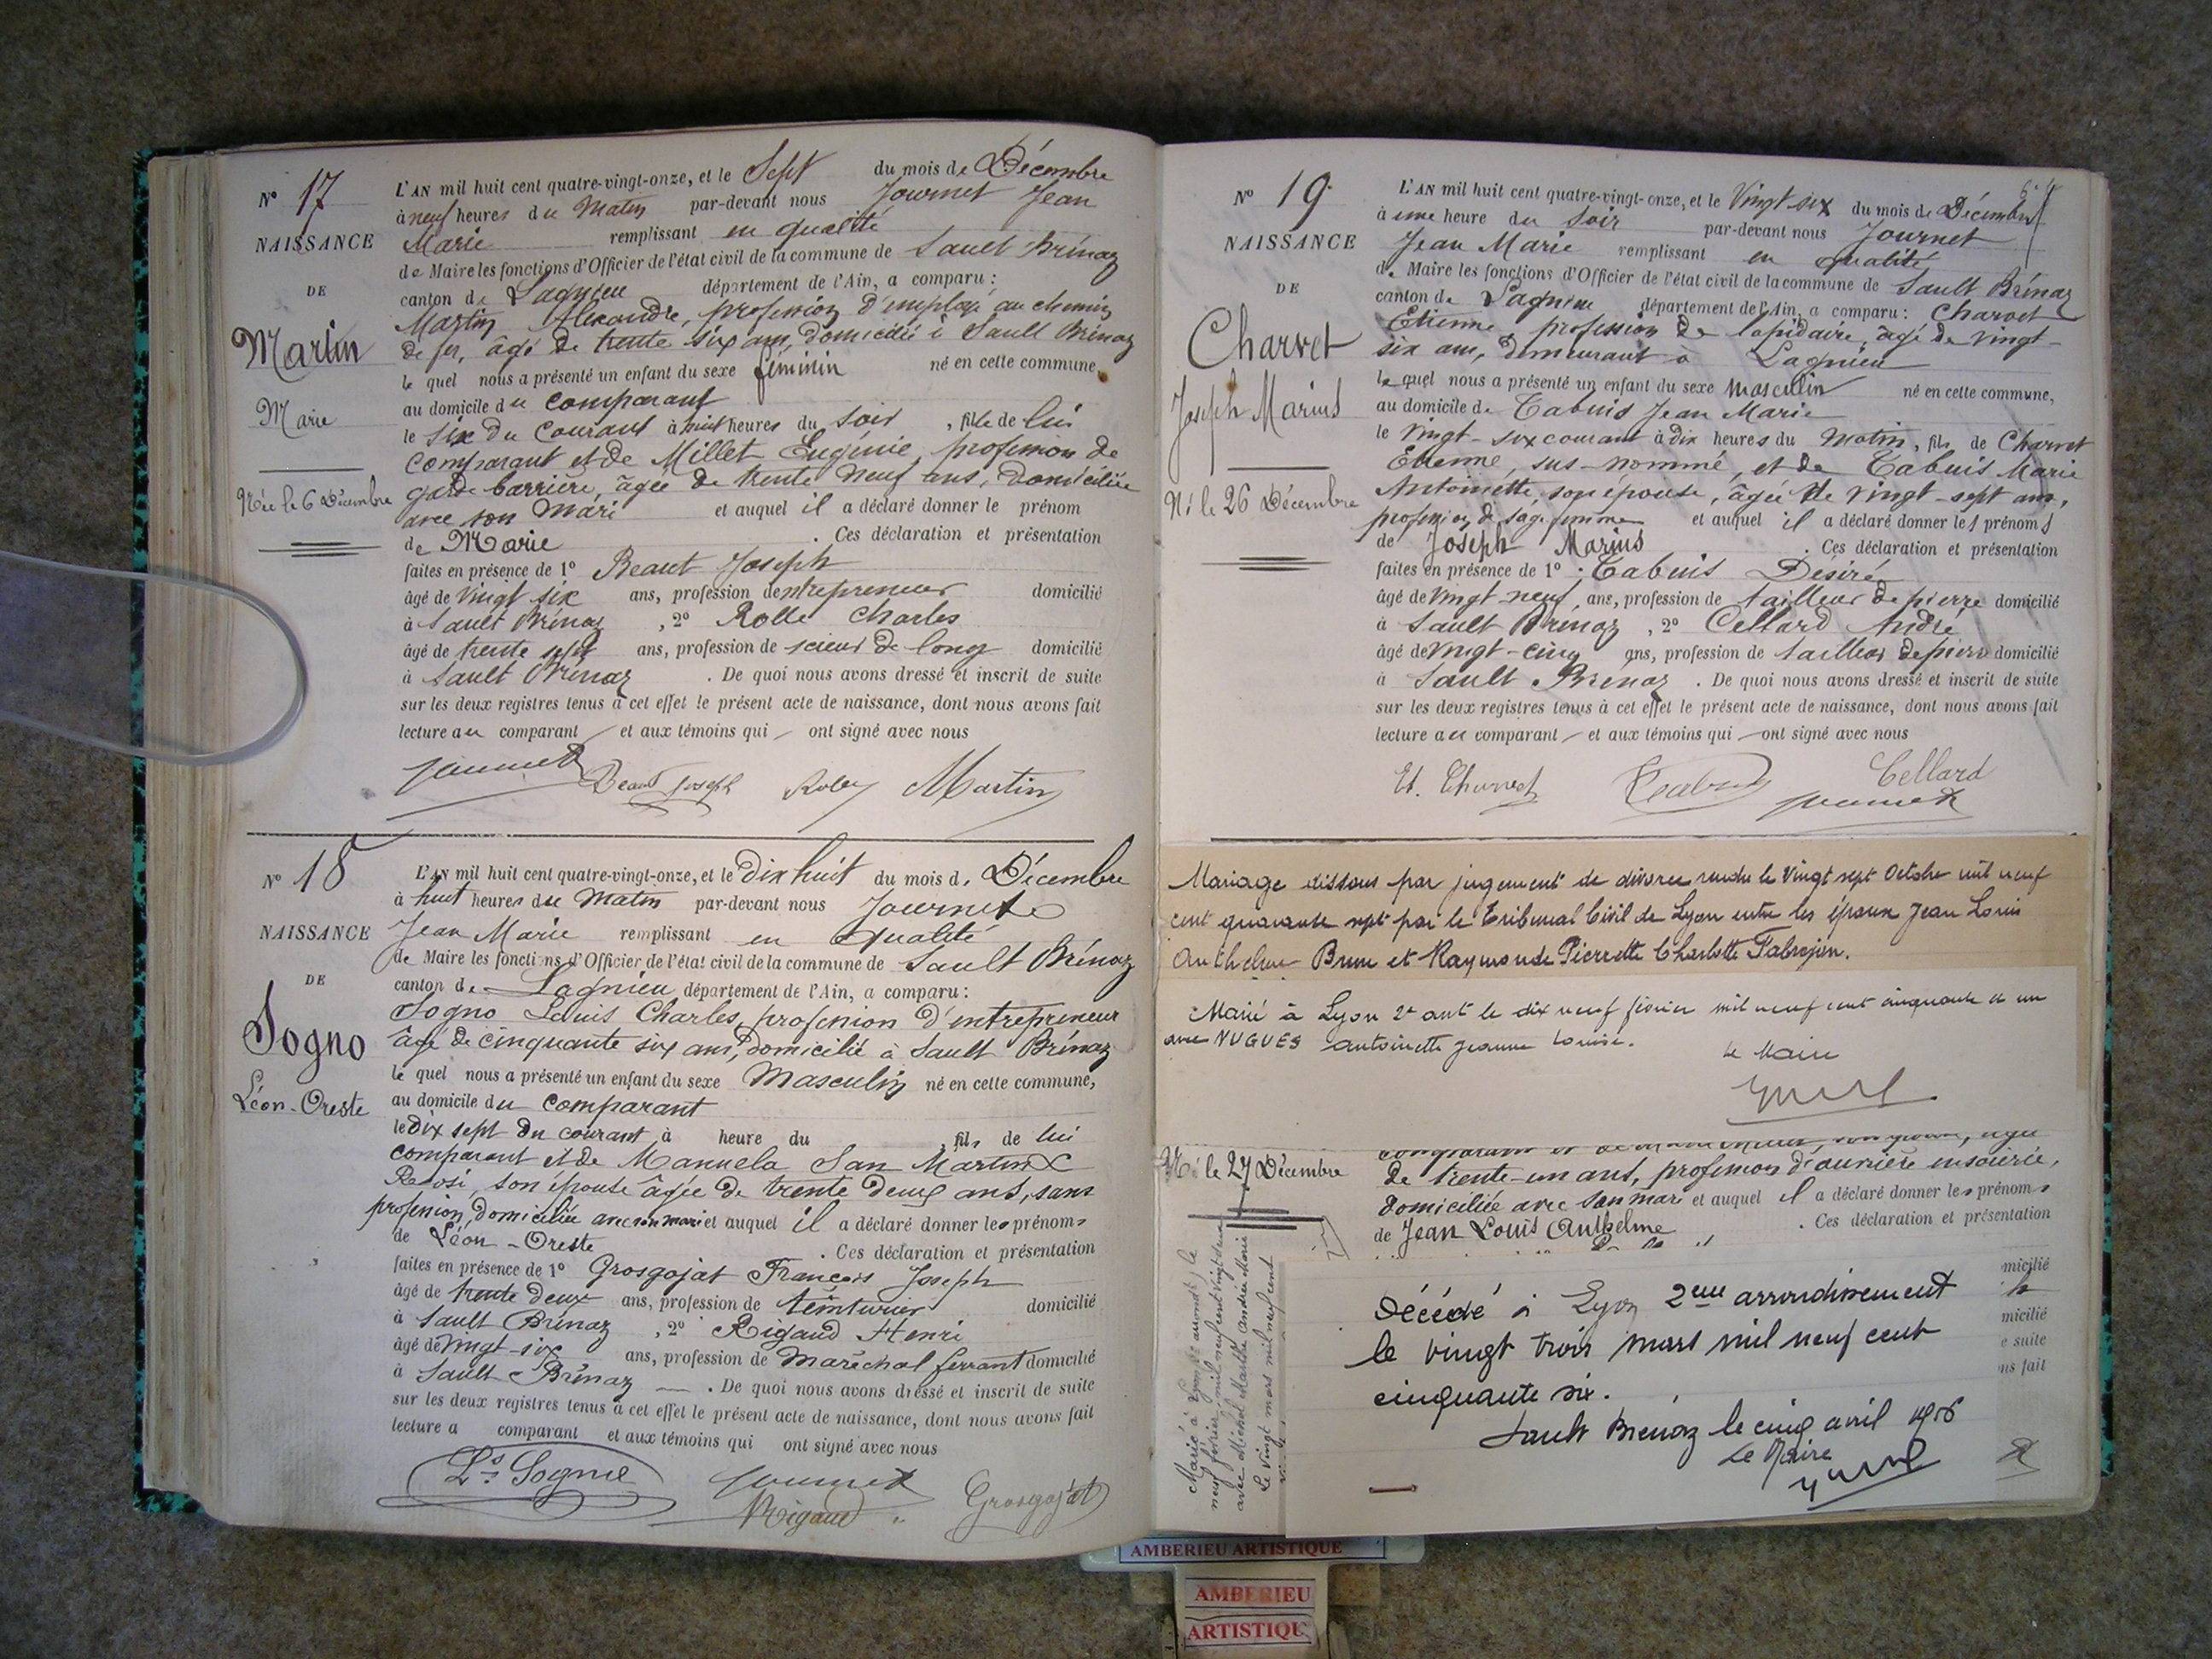 N° 17
NAISSANCE
DE
Martin
Marie
Née le 6 Décembre
L'AN mil huit cent quatre-vingt-onze, et le Sept du mois de Décembre
à neuf heures du Matin par-devant nous Journet Jean
Marie remplissant en qualité
de Maire les fonctions d'Officier de l'état civil de la commune de Sault Brénaz
canton de Lagnieu département de l'Ain, a comparu :
Martin Alexandre, profession d'employé au chemin
de fer, âgé de trente six ans, domicilié à Sault Brénaz
le quel nous a présenté un enfant du sexe féminin né en cette commune,
au domicile du comparant
le six du courant à huit heures du soir, fille de lui
comparant et de Millet Eugénie, profession de
garde barrière, âgée de trente neuf ans, domiciliée
avec son mari et auquel il a déclaré donner le prénom
de Marie . Ces déclaration et présentation
faites en présence de 1° Beaut Joseph
âgé de vingt six ans, profession d'entrepreneur domicilié
à Sault Brénaz , 2° Rolle Charles
âgé de trente sept ans, profession de scieur de long domicilié
à Sault Brénaz . De quoi nous avons dressé et inscrit de suite
sur les deux registres tenus à cet effet le présent acte de naissance, dont nous avons fait
lecture au comparant et aux témoins qui ont signé avec nous
Journet Beaut Joseph Rolle Martin
N° 18
NAISSANCE
DE
Sogno
Léon-Oreste
L'AN mil huit cent quatre-vingt-onze, et le dix huit du mois de Décembre
à huit heures du Matin par-devant nous Journet
Jean Marie remplissant en qualité
de Maire les fonctions d'Officier de l'état civil de la commune de Sault Brénaz
canton de Lagnieu département de l'Ain, a comparu :
Sogno Louis Charles, profession d'entrepreneur
âgé de cinquante six ans, domicilié à Sault Brénaz
le quel nous a présenté un enfant du sexe Masculin né en cette commune,
au domicile du comparant
le dix sept du courant à heure du , fils de lui
comparant et de Manuela San Martin
son épouse âgée de trente deux ans, sans
profession, domiciliée avec son mari et auquel il a déclaré donner les prénoms
de Léon-Oreste . Ces déclaration et présentation
faites en présence de 1° Grosgojat François Joseph
âgé de trente deux ans, profession de teinturier domicilié
à Sault Brénaz , 2° Rigaud Henri
âgé de vingt-six ans, profession de Maréchal ferrant domicilié
à Sault Brénaz . De quoi nous avons dressé et inscrit de suite
sur les deux registres tenus à cet effet le présent acte de naissance, dont nous avons fait
lecture a comparant et aux témoins qui ont signé avec nous
Ls Sogno Journet Grosgojat
Rigaud
N° 19
NAISSANCE
DE
Charvet
Joseph Marius
Né le 26 Décembre
L'AN mil huit cent quatre-vingt-onze, et le Vingt-six du mois de Décembre
à une heure du Soir par-devant nous Journet
Jean Marie remplissant en qualité
de Maire les fonctions d'Officier de l'état civil de la commune de Sault Brénaz
canton de Lagnieu département de l'Ain, a comparu : Charvet
Etienne, profession de lapidaire, âgé de vingt-
six ans, demeurant à Lagnieu
le quel nous a présenté un enfant du sexe masculin né en cette commune,
au domicile de Tabuis Jean Marie
le vingt-six courant à dix heures du Matin, fils de Charvet
Etienne, sus-nommé, et de Tabuis Marie
Antoinette, son épouse, âgée de vingt-sept ans,
profession de sage femme et auquel il a déclaré donner les prénoms
de Joseph Marius . Ces déclaration et présentation
faites en présence de 1° Tabuis Désiré
âgé de vingt-neuf ans, profession de tailleur de pierre domicilié
à Sault Brénaz , 2° Cellard André
âgé de vingt-cinq ans, profession de tailleur de pierre domicilié
à Sault Brénaz . De quoi nous avons dressé et inscrit de suite
sur les deux registres tenus à cet effet le présent acte de naissance, dont nous avons fait
lecture au comparant et aux témoins qui ont signé avec nous
Et. Charvet Tabuis Cellard
Journet
Mariage dissous par jugement de divorce rendu le Vingt sept Octobre mil neuf
cent quarante sept par le Tribunal Civil de Lyon entre les époux Jean Louis
Anthelme Brun et Raymonde Pierrette Charlotte Fabrejon.
Marié à Lyon 2e art le dix neuf février mil neuf cent cinquante et un
avec VUGUES Antoinette Jeanne Louise.
Le Maire
Né le 27 Décembre
de trente-un ans, profession d'ouvrière en soierie,
domiciliée avec son mari et auquel il a déclaré donner les prénoms
de Jean Louis Anthelme . Ces déclaration et présentation
micilié
micilié
e suite
ns fait
Marié à Lyon le
neuf février mil neuf cent vingt
avec Michel Marthe Andrée Marie
Le vingt mars mil neuf cent
Décédé à Lyon 2eme arrondissement
le vingt trois mars mil neuf cent
cinquante six.
Sault Brénaz le cinq avril 1956
Le Maire
AMBERIEU ARTISTIQUE
AMBERIEU
ARTISTIQUE